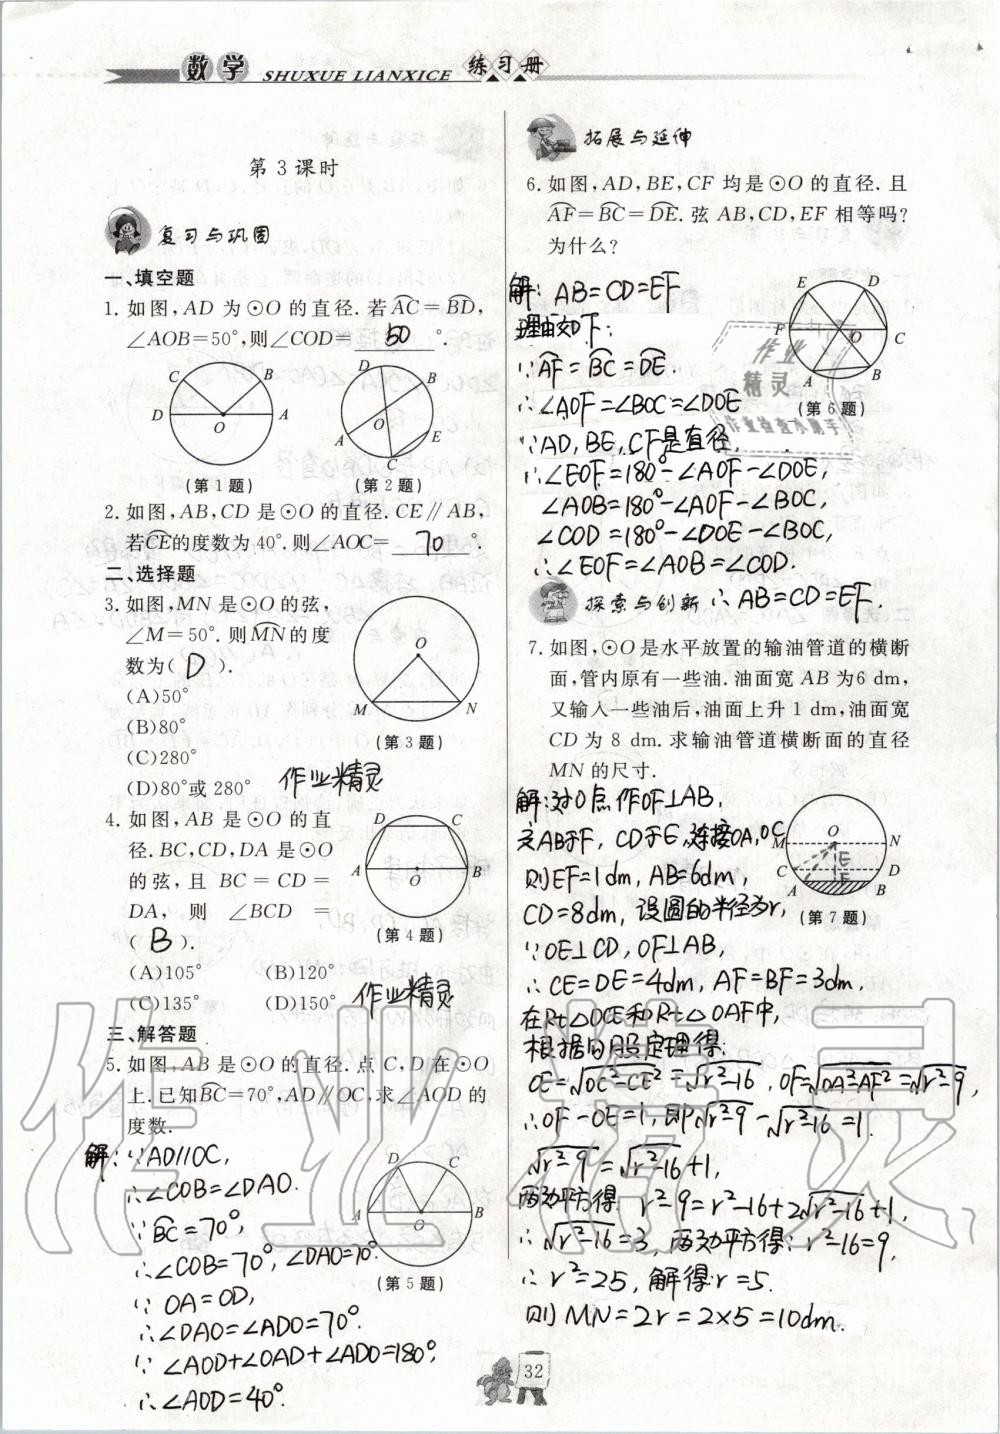 数学
SHUXUE LIANXICE 练习册
第3课时
复习与巩固
一、填空题
1. 如图,AD 为⊙O 的直径.若⌒AC=⌒BD,
∠AOB=50°,则∠COD= 50 °.
C B D O A
(第1题)
D B O A E C
(第2题)
2. 如图,AB,CD 是⊙O 的直径.CE∥AB,
若⌒CE的度数为40°.则∠AOC= 70 °.
二、选择题
3. 如图,MN 是⊙O 的弦,
∠M=50°.则⌒MN的度
数为( D ).
(A)50°
(B)80°
(C)280°
(D)80°或 280°
O M N
(第3题)
作业精灵
4. 如图,AB 是⊙O 的直
径.BC,CD,DA 是⊙O
的弦,且 BC=CD=
DA,则 ∠BCD=
( B ).
(A)105° (B)120°
(C)135° (D)150°
D C A O B
(第4题)
作业精灵
三、解答题
5. 如图,AB是⊙O的直径.点C,D在⊙O
上.已知⌒BC=70°,AD∥OC,求∠AOD的
度数.
解:∵AD//OC,
∴∠COB=∠DAO.
∵⌒BC=70°,
∴∠COB=70°,∠DAO=70°.
∵OA=OD,
∴∠DAO=∠ADO=70°.
∵∠AOD+∠OAD+∠ADO=180°,
∴∠AOD=40°.
D C A O B
(第5题)
拓展与延伸
6. 如图,AD,BE,CF 均是⊙O 的直径.且
⌒AF=⌒BC=⌒DE.弦 AB,CD,EF 相等吗?
为什么?
解:AB=CD=EF
理由如下:
∵⌒AF=⌒BC=⌒DE.
∴∠AOF=∠BOC=∠DOE
∵AD,BE,CF是直径,
∴∠EOF=180°-∠AOF-∠DOE,
∠AOB=180°-∠AOF-∠BOC,
∠COD=180°-∠DOE-∠BOC,
∴∠EOF=∠AOB=∠COD.
∴AB=CD=EF.
E D F O C A B
(第6题)
作业
精灵
作业检查小助手
探索与创新
7. 如图,⊙O是水平放置的输油管道的横断
面,管内原有一些油.油面宽 AB 为6 dm,
又输入一些油后,油面上升1 dm,油面宽
CD 为 8 dm.求输油管道横断面的直径
MN 的尺寸.
解:过O点作OF⊥AB,
交AB于F,CD于E,连接OA,OC
则EF=1dm,AB=6dm,
CD=8dm,设圆的半径为r,
∵OE⊥CD,OF⊥AB,
∴CE=DE=4dm,AF=BF=3dm.
在Rt△OCE和Rt△OAF中,
根据勾股定理得:
OE=√OC²-CE²=√r²-16,OF=√OA²-AF²=√r²-9,
∴OF-OE=1,即√r²-9-√r²-16=1.
√r²-9=√r²-16+1,
两边平方得:r²-9=r²-16+2√r²-16+1,
∴√r²-16=3,两边平方得:r²-16=9,
∴r²=25,解得:r=5.
则MN=2r=2×5=10dm.
M O N C E D A F B
(第7题)
作业精灵
32